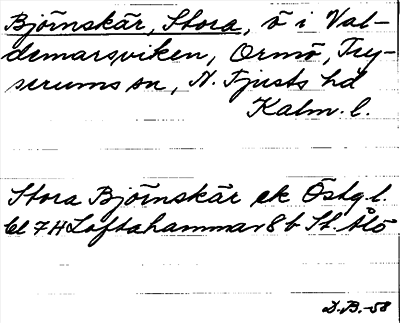 Björnskär, Stora, ö i Val-
demarsviken, Ormö, Try-
serums sn, N. Tjusts hd
Kalm. l.
Stora Björnskär ek Östg. l.
bl 7H Loftahammar 8 b St. Ålö
D.B.-58